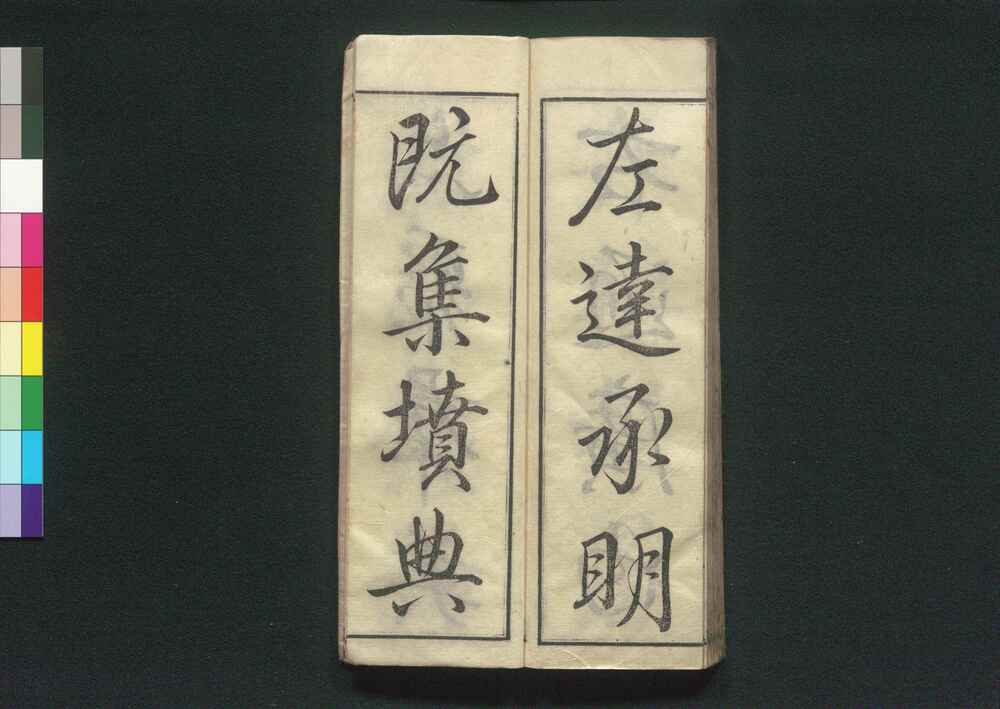 左達承明
既集墳典